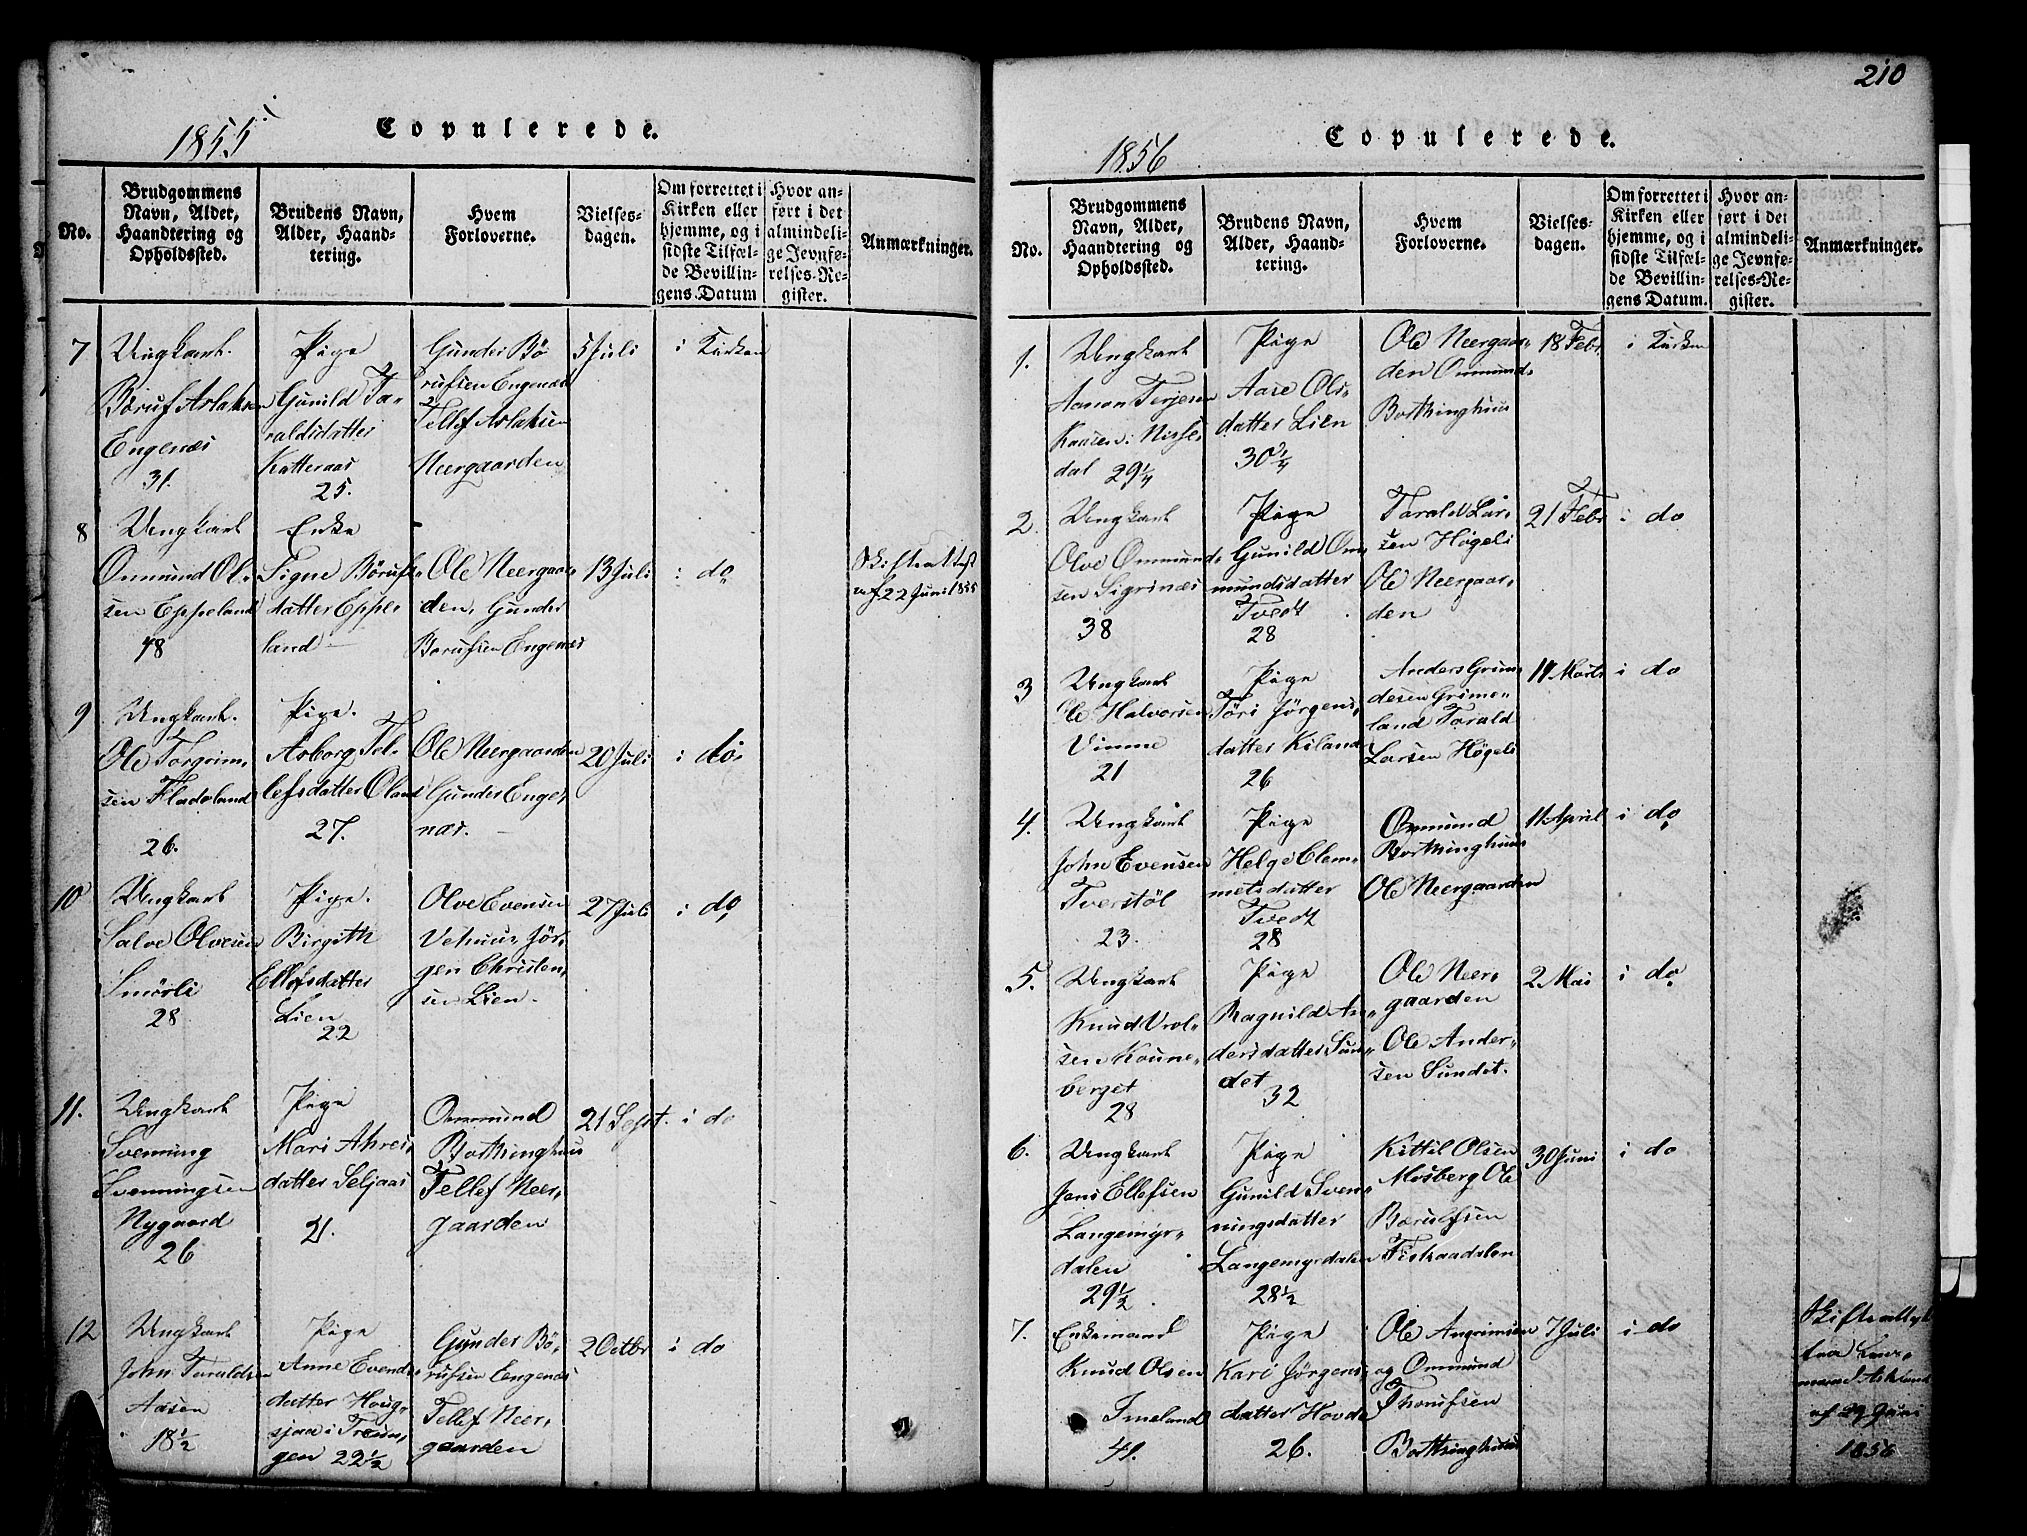 1855
Copulerede.
No.
Brudgommens
Navn, Alder,
Haandtering og
Opholdssted.
Brudens Navn,
Alder, Haand-
tering.
Hvem
Forloverne.
Vielses-
dagen.
Om forrettet i
Kirken eller
hjemme, og i
sidste Tilfæl-
de Bevillin-
gens Datum
Hvor an-
ført i det
almindeli-
ge Jevnfø-
relses-Re-
gister.
Anmærkninger.
7
Ungkarl.
Børuf Aslaksen
Engenæs
31.
Pige
Gunild Ta-
raldsdatter
Katteraas
25.
Gunder Bö
rufsen Engenæs
Tellef Aslaksen
Neergaarden
5 Juli
i Kirken
8
Ungkarl
Ommund Ol-
sen Eppeland
48
Enke
Signe Börufs-
datter Eppe-
land
Ole Neergaar-
den, Gunder
Børufsen Engenæs
13 Juli
i do
Skifteattest
af 22 Juni 1855
9
Ungkarl.
Ole Torgrim-
sen Fladeland
26.
Pige.
Asborg Tel-
lefsdatter Oland
27.
Ole Neergaarden
Gunder Enge-
næs.
20 Juli
i do
10
Ungkarl
Salve Olvesen
Smörli
28
Pige.
Birgith
Ellefsdatter
Lien
22
Olve Evensen
Vehuus, Jör-
gen Christen-
sen Lien.
27 Juli
i do
11.
Ungkarl
Svenning
Svenningsen
Nygaard
26
Pige
Mari Ahres-
datter Seljaas
21.
Ommund
Bortsinghuus
Tellef Neer-
gaarden
21 Sept.
i do
12
Ungkarl
John Taraldsen
Aasen
18½
Pige
Anne Evends-
datter Houg-
sjaa i Treun-
gen 22½
Gunder Bö-
rufsen Engenæs
Tellef Neer-
gaarden
2 Octbr
i do
210
1856
Copulerede.
No.
Brudgommens
Navn, Alder,
Haandtering og
Opholdssted.
Brudens Navn,
Alder, Haand-
tering.
Hvem
Forloverne.
Vielses-
dagen.
Om forrettet i
Kirken eller
hjemme, og i
sidste Tilfæl-
de Bevillin-
gens Datum.
Hvor an-
ført i det
almindeli-
ge Jevnfø-
relses-Re-
gister.
Anmærkninger.
1.
Ungkarl
Aanon Terjesen
Kaasen i Nisse-
dal 29¼
Pige
Aase Ols-
datter Lien
30¾
Ole Neergaar-
den Ommund
Bortsinghuus
18 Febr
i Kirken
2.
Ungkarl
Olve Ommund-
sen Sigrinæs
38
Pige
Gunild Om-
mundsdatter
Tvedt
28
Tarald Lar-
sen Högeli
Ole Neergaar-
den
21 Febr
i do
3
Ungkarl
Ole Halvorsen
Vimme
21
Pige
Töri Jörgens-
datter Kiland
26
Anders Grun-
desen Grime-
land Tarald
Larsen Högeli
11 Marts
i do
4.
Ungkarl
John Evensen
Tverstöl
23.
Pige
Helge Clem-
metsdatter
Tvedt
28
Ommund
Bortsinghuus
Ole Neergaarden
11 April
i do
5.
Ungkarl
Knud Vrol-
sen Koune-
berget
28
Pige
Ragnild An-
dersdatter Sun-
det
32
Ole Neer-
gaarden
Ole Ander-
sen Sundet.
2 Mai
i do
6.
Ungkarl
Jens Ellefsen
Langemyr-
dalen
29½
Pige
Gunild Sven-
ningsdatter
Langemyrdalen
28½
Kittil Olsen
Mosberg Ole
Børulfsen
Fiskaadalen
30 Juni
i do
7.
Enkemand
Knud Olsen
Imeland
41.
Pige
Kari Jörgens-
datter Hovde
26.
Ole Angrimsen
og Ommund
Thorufsen
Bortsinghuus
7 Juli
i do
Skifteattest
fra Lens-
mand Askland
af 29 Juni
1856